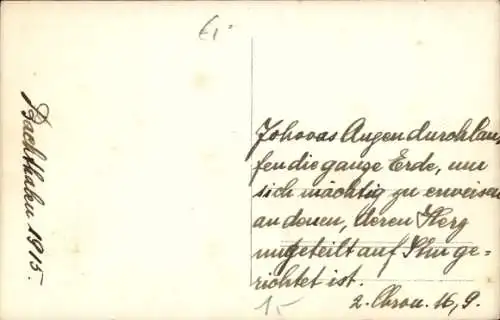 Bachthalen 1915.
Jehovas Augen durchlau-
fen die ganze Erde, um
sich mächtig zu erweisen
an denen, deren Herz
ungeteilt auf Ihn ge-
richtet ist.
2. Chron. 16, 9.
15